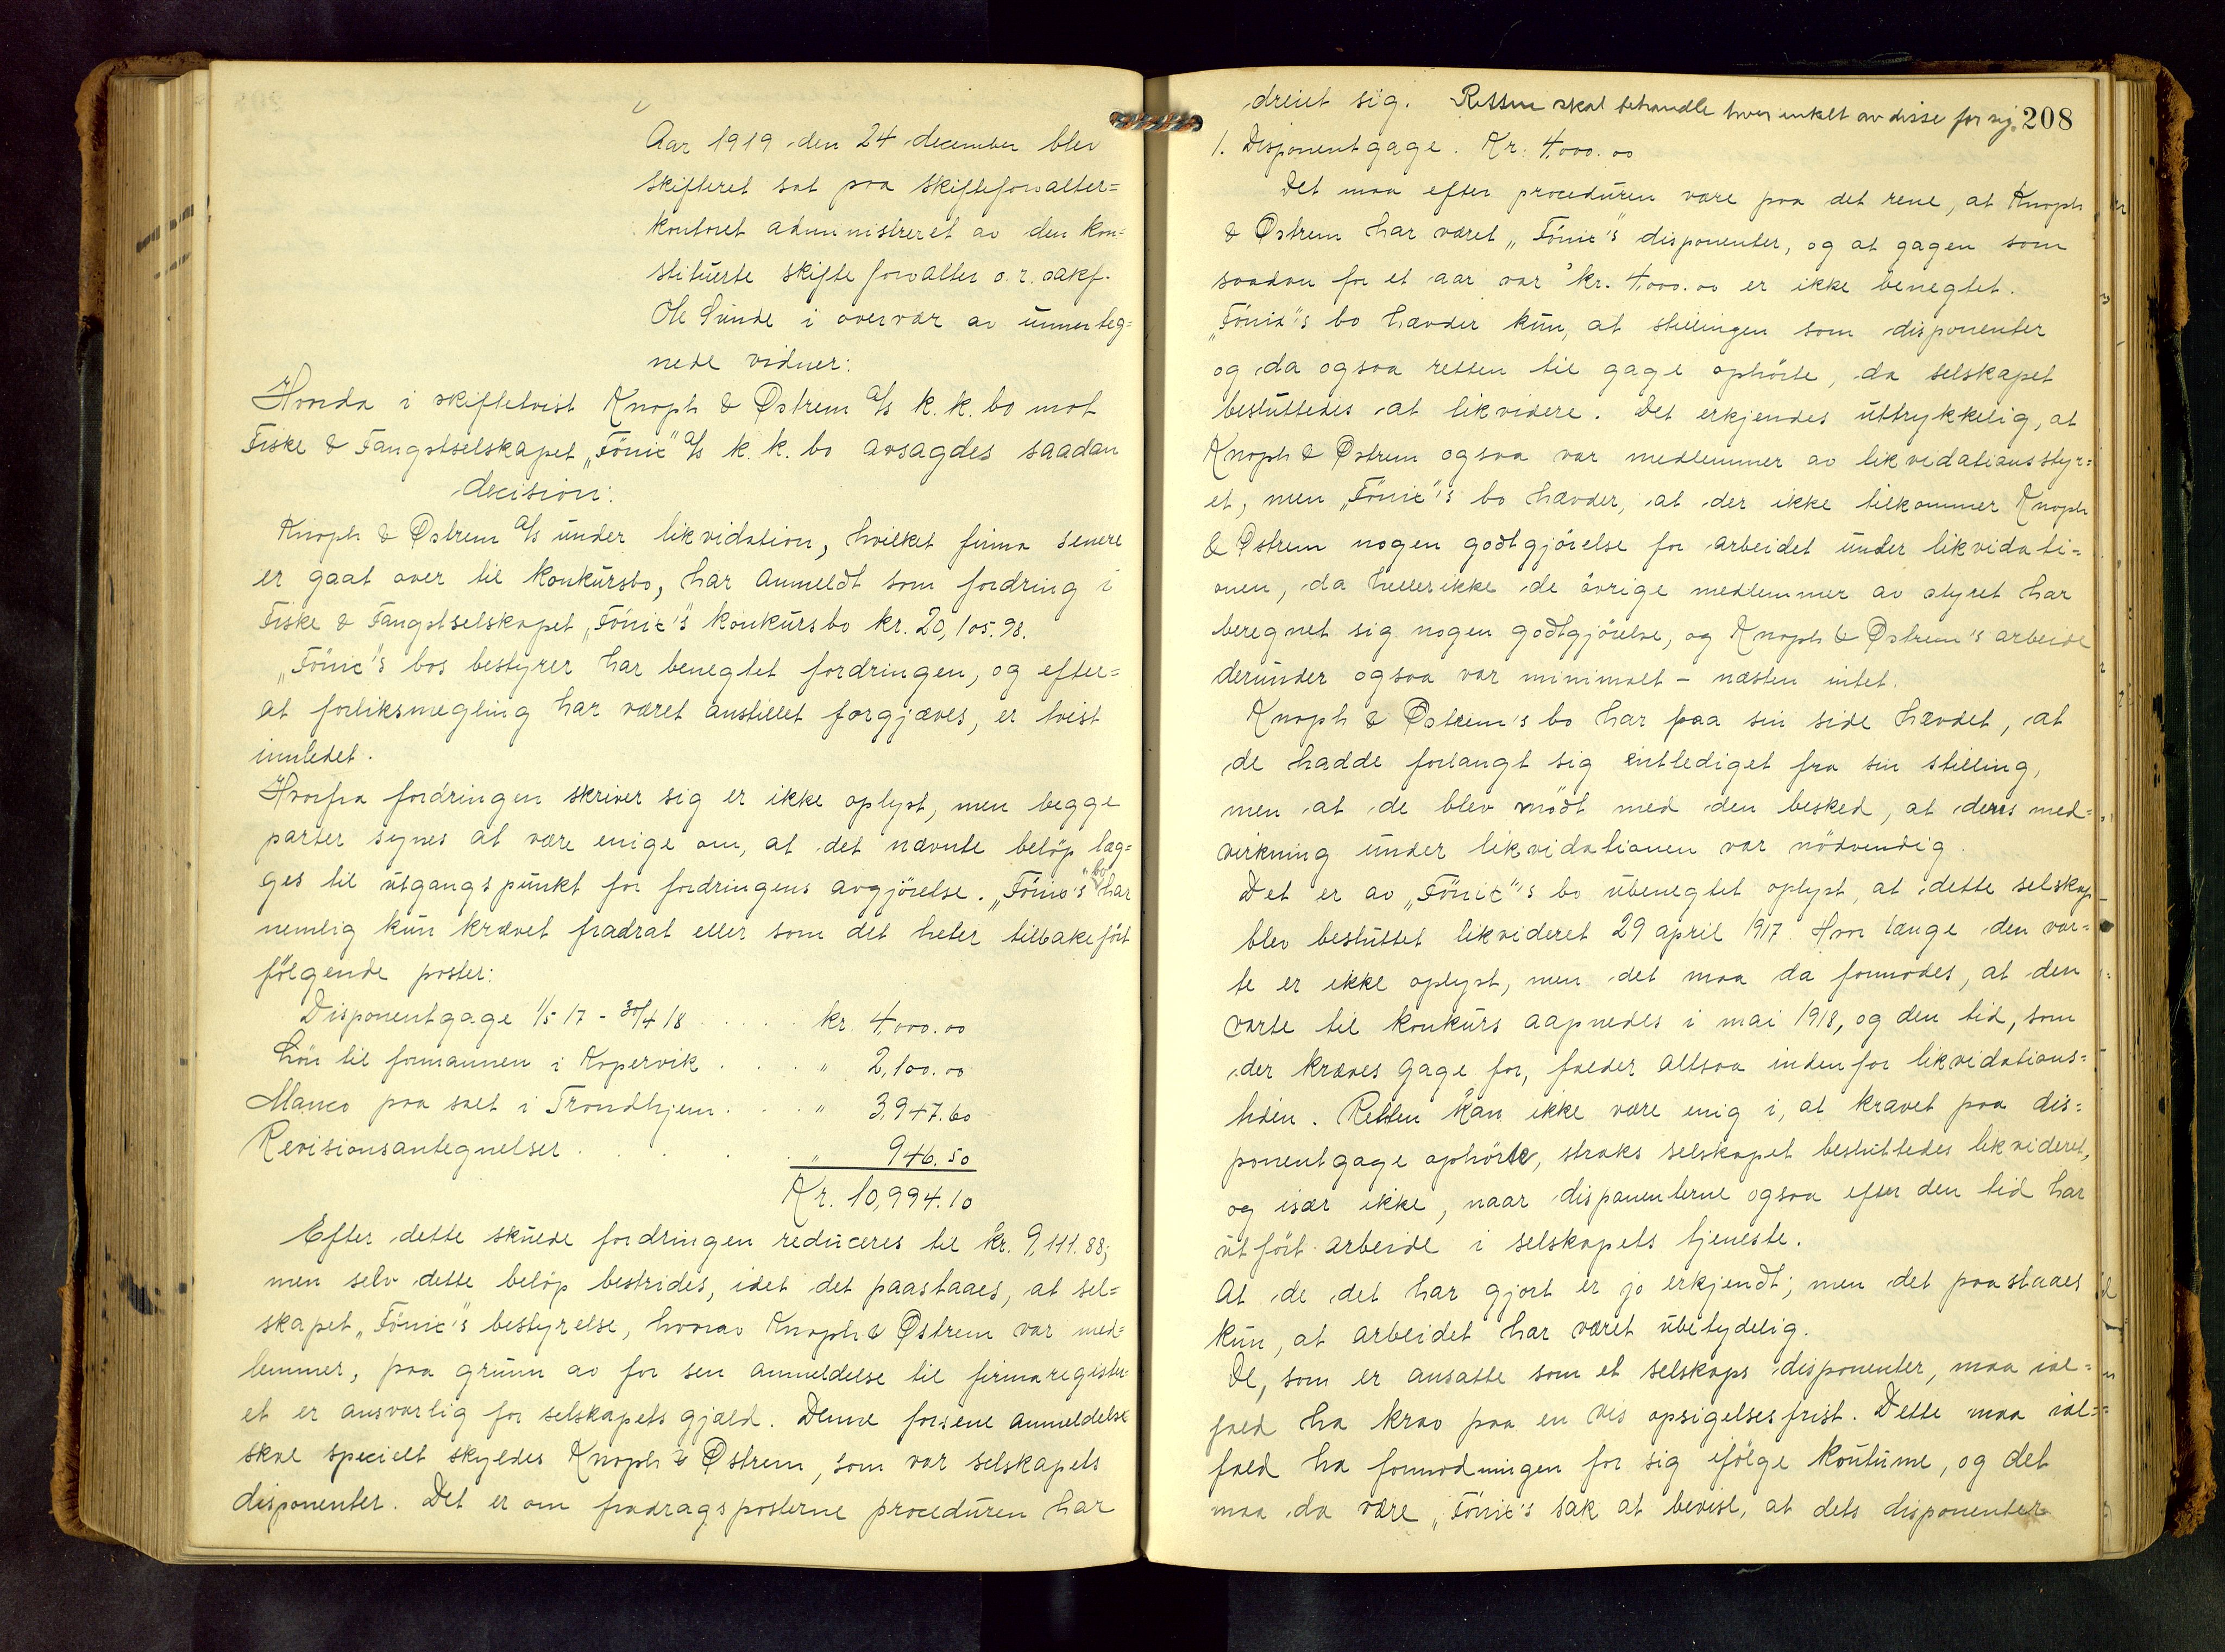 Aar 1919 den 24 december blev
skifteret sat paa skifteforvalter=
kontoret administreret av den kon=
stituerte skifteforvalter o.r. sakf.
Ole Sunde i overvær av unnerteg=
nede vidner:
Hvorda i skiftetvist Knoph & Østrem a/s k. k. bo mot
Fiske & Fangstselskapet „Fönix" a/s k. k. bo avsagdes saadan
decision:
Knoph & Østrem a/s under likvidation, hvilket firma senere
er gaat over til konkursbo, har anmeldt som fordring i
Fiske & Fangstselskapet „Fönix"s konkursbo kr. 20,105.98.
„Fönix"s bos bestyrer har benegtet fordringen, og efter=
at forliksmegling har været anstillet forgjæves, er tvist
innledet.
Hvorfra fordringen skriver sig er ikke oplyst, men begge
parter synes at være enige om, at det nævnte belöp læg=
ges til utgangspunkt for fordringens avgjörelse. „Fönix"s bo har
nemlig kun krævet fradrat eller som det heter tilbakefört
fölgende poster:
Disponentgage 1/5 17 - 30/4 18 . . . . kr. 4,000.00
Lön til formannen i Kopervik . . . . " 2,100.00
Manco paa salt i Trondhjem . . . " 3,947.60
Revisionsantegnelser . . . . . " 946.50
Kr. 10,994.10
Efter dette skulde fordringen reduceres til kr. 9,111.88;
men selv dette belöp bestrides, idet det paastaaes, at sel=
skapet „Fönix"s bestyrelse, hvorav Knoph & Østrem var med=
lemmer, paa grunn av for sen anmeldelse til firmaregistr
et er ansvarlig for selskapets gjæld. Denne forsene anmeldelse
skal specielt skyldes Knoph & Østrem, som var selskapets
disponenter. Det er om fradragsposterne proceduren har
208
dreiet sig. Retten skal behandle hver enkelt av disse for sig.
1. Disponentgage. Kr. 4,000.00
Det maa efter proceduren være paa det rene, at Knoph
& Østrem har været „Fönix"s disponenter, og at gagen som
saadan for et aar var kr. 4,000.00 er ikke benegtet.
„Fönix"s bo hævder kun, at stillingen som disponenter
og da ogsaa retten til gage ophörte, da selskapet
besluttedes at likvidere. Det erkjendes uttrykkelig, at
Knoph & Østrem ogsaa var medlemmer av likvidationsstyr=
et, men „Fönix"s bo hævder, at der ikke tilkommer Knoph
& Østrem nogen godtgjörelse for arbeidet under likvidati=
onen, da heller ikke de övrige medlemmer av styret har
beregnet sig nogen godtgjörelse, og Knoph & Østrem's arbeide
derunder ogsaa var minimalt - næsten intet.
Knoph & Østrem's bo har paa sin side hævdet, at
de hadde forlangt sig entlediget fra sin stilling,
men at de blev mödt med den besked, at deres med=
virkning under likvidationen var nödvendig.
Det er av „Fönix"s bo ubenegtet oplyst, at dette selskap
blev besluttet likvideret 29 april 1917. Hvor længe den var=
te er ikke oplyst, men det maa da formodes, at den
varte til konkurs aapnedes i mai 1918, og den tid, som
der kræves gage for, falder altsaa indenfor likvidations=
tiden. Retten kan ikke være enig i, at kravet paa dis=
ponentgage ophörte, straks selskapet besluttedes likvideret,
og især ikke, naar disponenterne ogsaa efter den tid har
utfört arbeide i selskapets tjeneste.
At de det har gjort er jo erkjendt; men det paastaaes
kun, at arbeidet har været ubetydelig.
De, som er ansatte som et selskaps disponenter, maa ial=
fald ha krav paa en vis opsigelsesfrist. Dette maa ial=
fald ha formodningen for sig ifölge koutume, og det
maa da være „Fönix"s sak at bevise, at dets disponenter